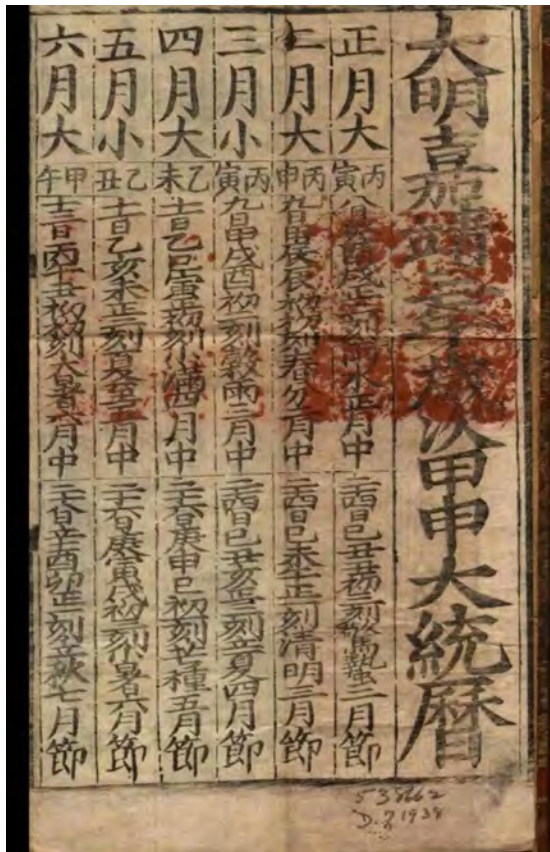 大明嘉靖三年歲次甲申大統曆
正月大
丙寅
八日癸酉戌正三刻雨水正月中
二十四日己丑丑初三刻驚蟄二月節
二月大
丙申
九日甲辰辰初初刻春分二月中
二十四日己未午正一刻清明三月節
三月小
丙寅
九日甲戌酉初二刻穀雨三月中
二十四日己丑亥正三刻立夏四月節
四月大
乙未
十一日乙巳寅正初刻小滿四月中
二十六日庚申巳初初刻芒種五月節
五月小
乙丑
十一日乙亥未正二刻夏至五月中
二十六日庚寅戌初二刻小暑六月節
六月大
甲午
十三日丙午丑初初刻大暑六月中
二十八日辛酉卯正一刻立秋七月節
538662
D.7 1938